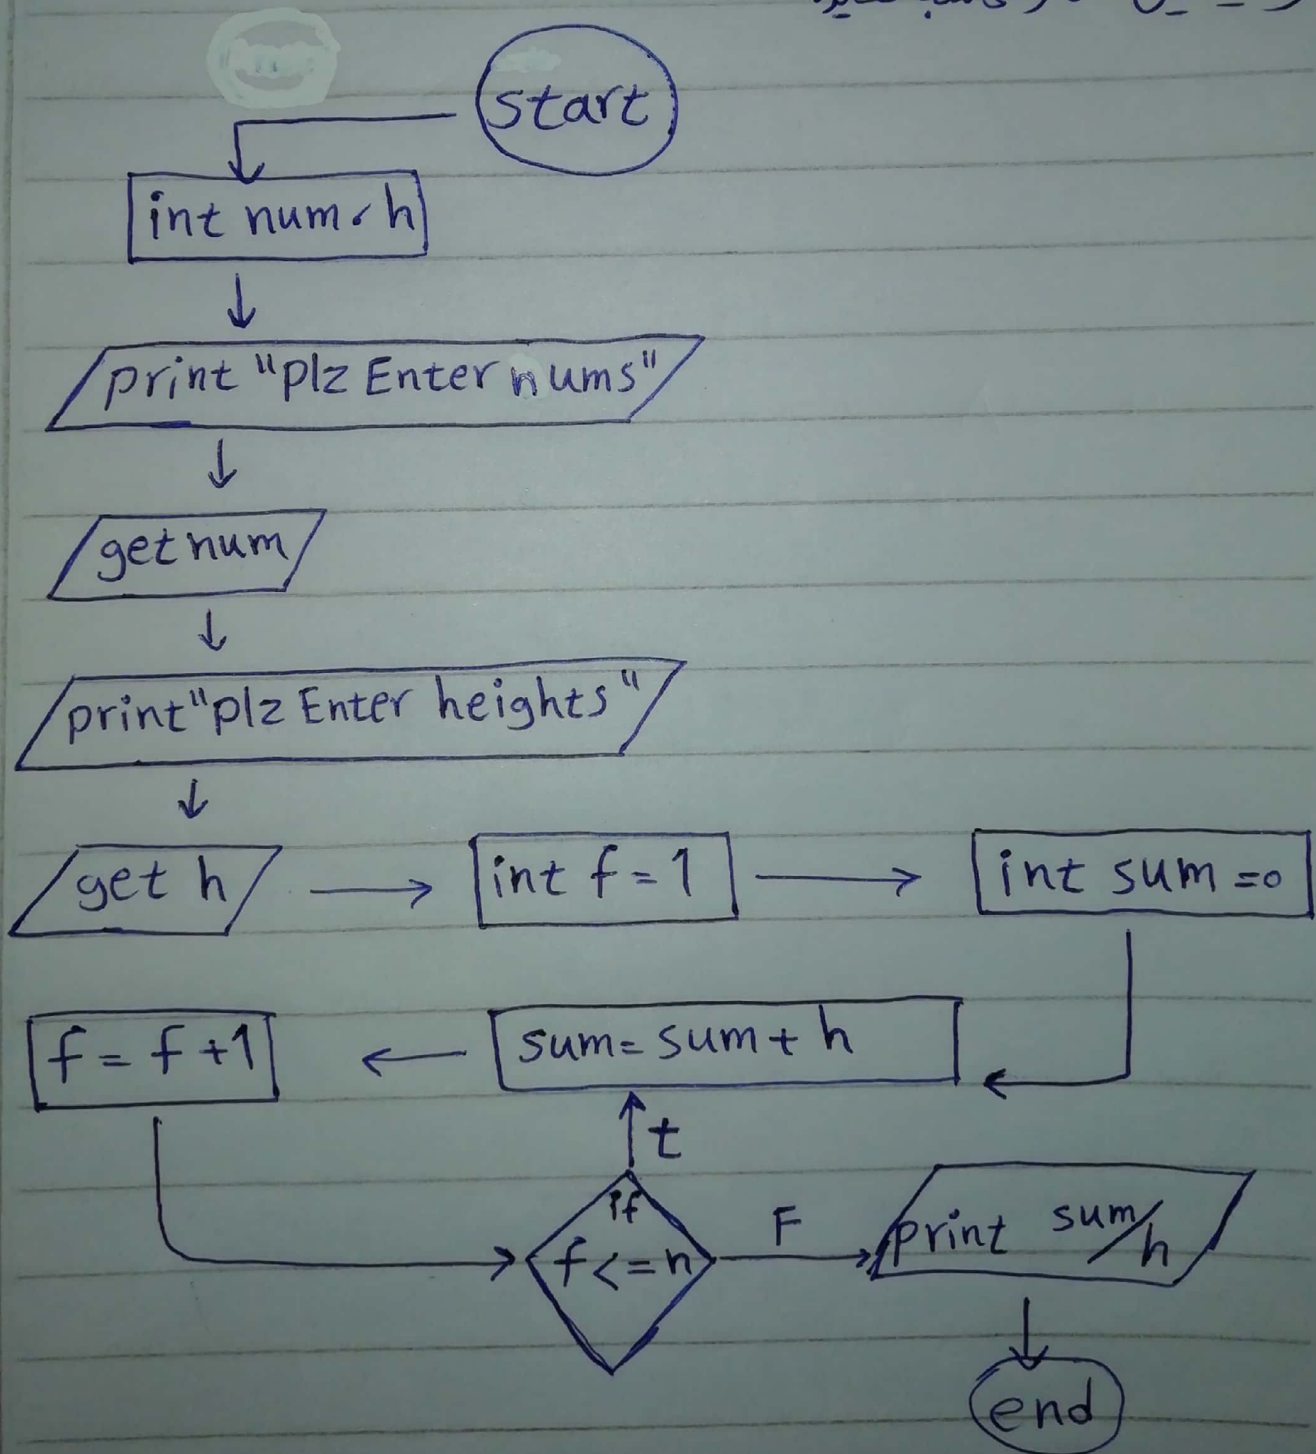 start
int num, h
print "plz Enter nums"
get num
print "plz Enter heights"
get h
int f = 1
int sum = 0
sum = sum + h
f = f + 1
t
if
f <= n
F
print sum/h
end